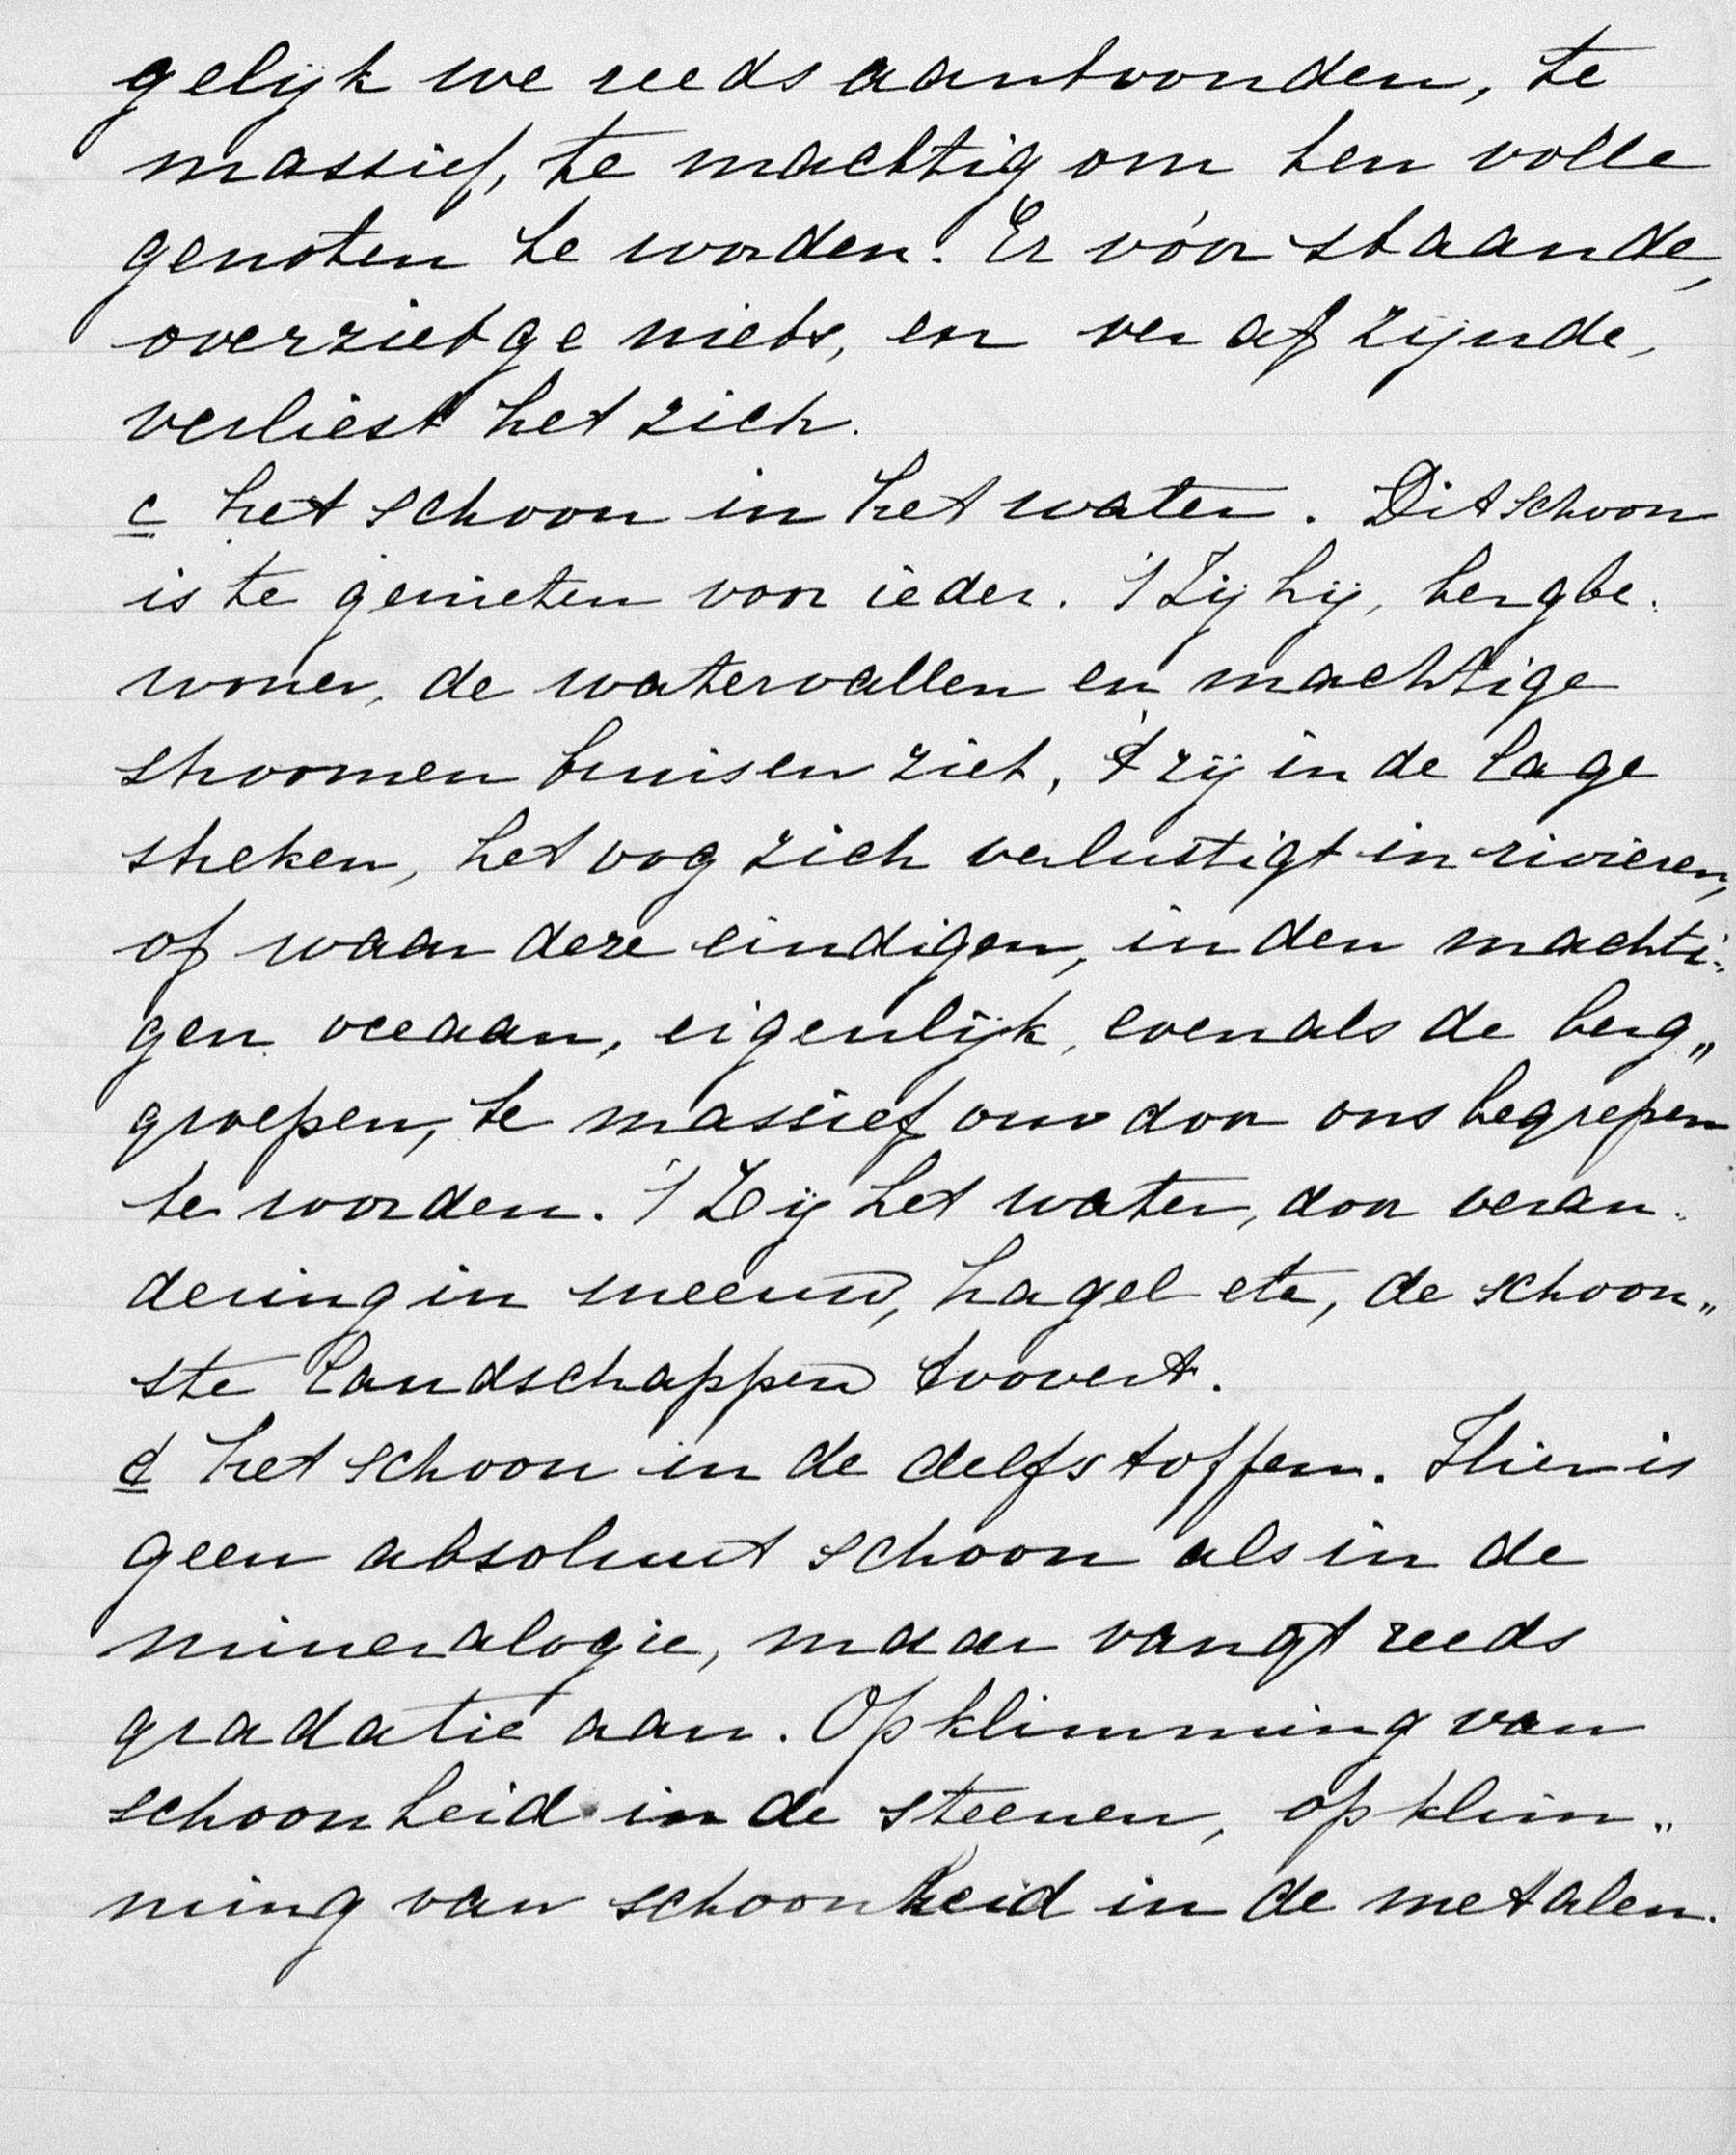 gelijk we reeds aantoonden, te
massief, te machtig om ten volle
genoten te worden. Er vóór staande,
overziet ge niets, en ver af zijnde,
verliest het zich.
c het schoon in het water. Dit schoon
is te genieten voor ieder. 't Zij hij, bergbe-
woner, de watervallen en machtige
stroomen bruisen ziet, 't zij in de lage
streken, het oog zich verlustigt in rivieren,
of waar deze eindigen, in den machti-
gen oceaan, eigenlijk, evenals de berg„
groepen, te massief om door ons begrepen
te worden. 't Zij het water, door veran-
dering in sneeuw, hagel etc, de schoon„
ste landschappen toovert.
d het schoon in de delfstoffen. Hier is
geen absoluut schoon als in de
mineralogie, maar vangt reeds
gradatie aan. Opklimming van
schoonheid in de steenen, opklim„
ming van schoonheid in de metalen.